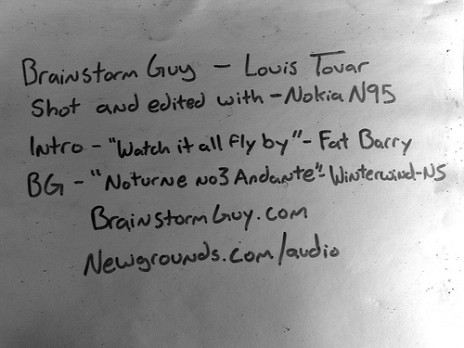 Brainstorm Guy - Louis Tovar
Shot and edited with - Nokia N95
Intro - "Watch it all fly by" - Fat Barry
BG - "Noturne no3 Andante" - Winterwind-NS
BrainstormGuy.com
Newgrounds.com/audio